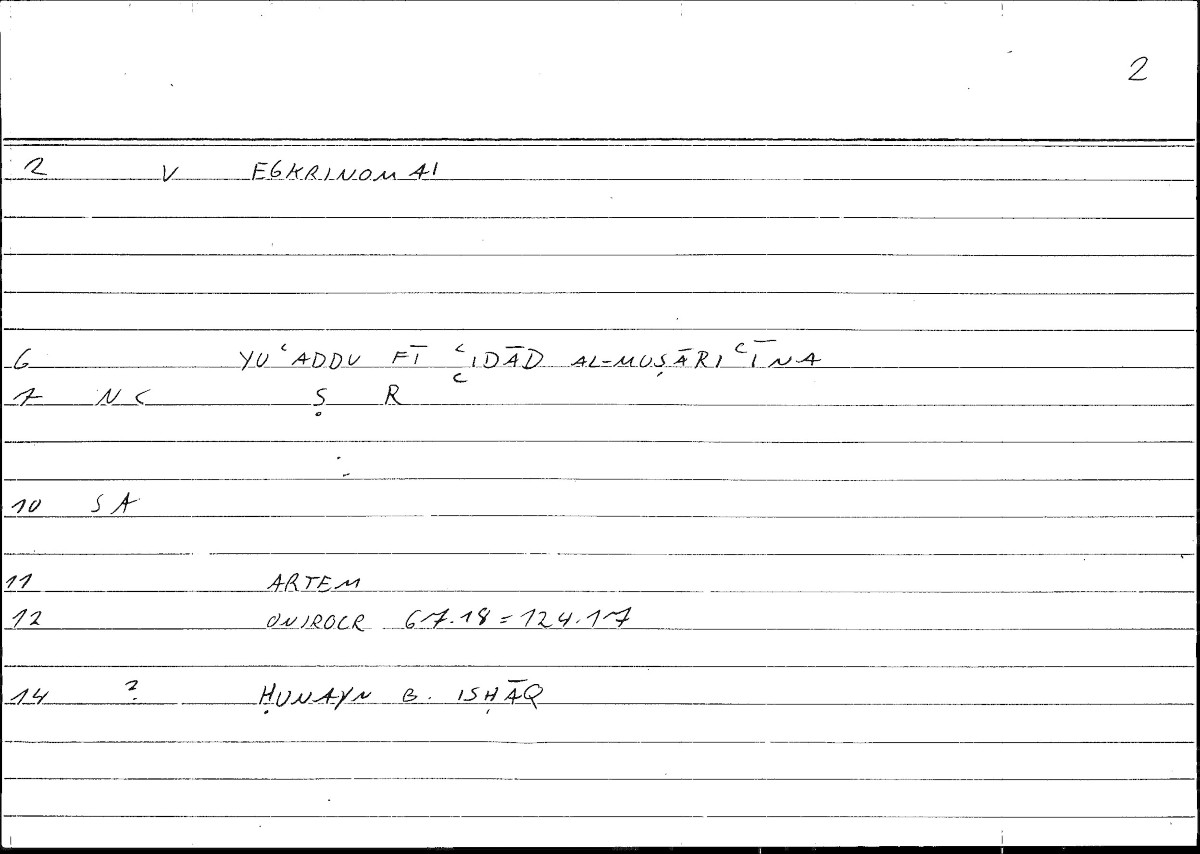 2
2 V EGKRINOMAI
6 YUʿADDU FĪ ʿIDĀD AL-MUṢĀRIʿĪNA
7 NC Ṣ R ʿ
10 SA
11 ARTEM
12 ONIROCR 67.18 = 124.17
14 ? ḤUNAYN B. ISḤĀQ